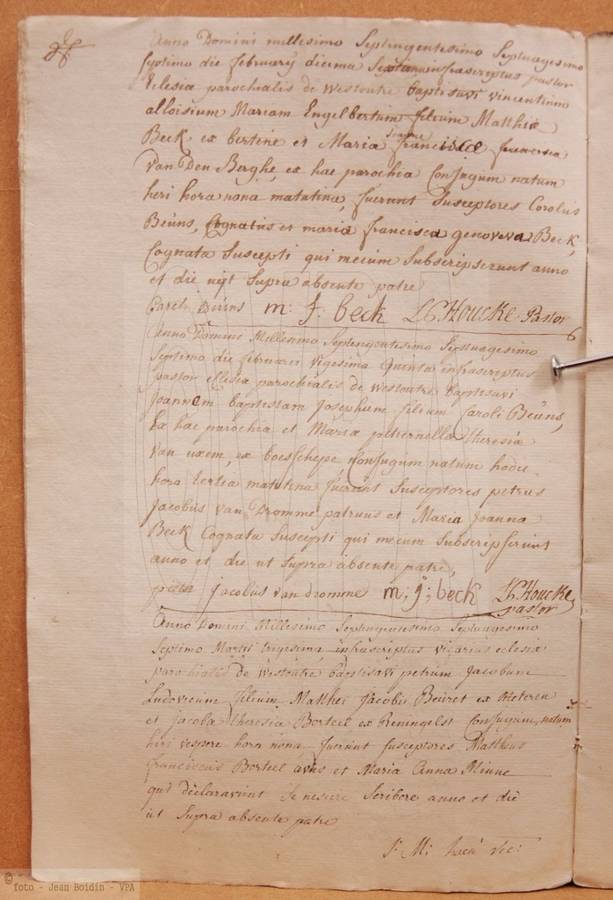 Anno Domini millesimo Septingentesimo Septuagesimo
septimo die february decima infrascriptus pastor
Eclesia parochialis de Westoutre baptisavi vincentium
alloisium Mariam Engelbertum filium Matthia
Beck ex bertene et Maria francisca
van Den Berghe, ex hac parochia Conjugum natum
heri hora nona matutina, fuerunt Susceptores Carolus
Beùns, Cognatus et maria francisca genoveva Beck,
Cognata Suscepti qui mecum Subscripserunt anno
et die ut Supra absente patre
Carel Beùns m: f. beck Houcke Pastor
Anno Domini Millesimo Septingentesimo Septuagesimo
Septimo die februarii vigesima quinta infrascriptus
pastor eclesia parochialis de westoutre baptisavi
Joannem baptistam Josephum filium Caroli Beùns,
Ex hac parochia et Maria petronella theresia
van uxem, ex boeschepe Conjugum natum hodie
hora tertia matutina fuerunt Susceptores petrus
Jacobus van Dromme patruus et Maria Joanna
Beck Cognata Suscepti qui mecum Subscripserunt
anno et die ut Supra absente patre,
pieter Jacobus van dromme m: j: beck Houcke
pastor
Anno Domini Millesimo Septingentesimo Septuagesimo
Septimo Martii trigesima infrascriptus vicarius eclesia
parochialis de Westoutre baptisavi petrum Jacobum
Ludovicum filium Matthei Jacobi Beiret ex
et Jacoba theresia Borteel ex Reningelst Conjugum, natum
heri vespere hora nona fuerunt Susceptores Mattheus
franciscus Borteel avus et Maria Anna Minne
qui declaravunt Se nescire Scribere anno et die
ut Supra absente patre
© foto - Jean Boidin - VPA